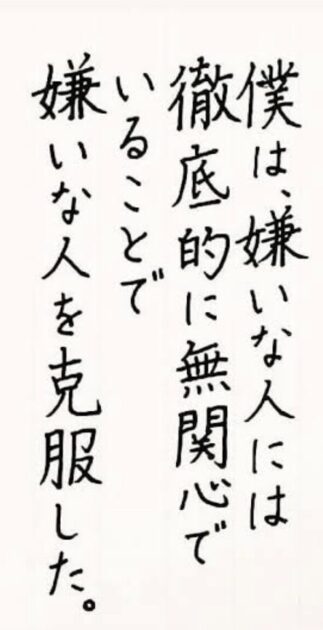 僕は、嫌いな人には
徹底的に無関心で
いることで
嫌いな人を克服した。